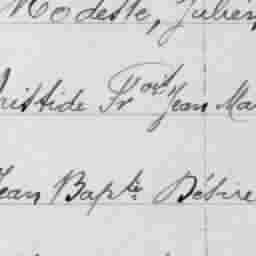 Modeste, Julien,
ristide Fr.ois Jean Ma
Jean Bapte Désire